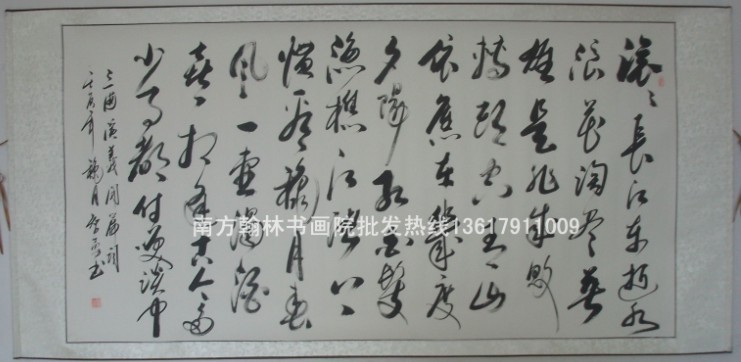 滚滚長江东逝水
浪花淘尽英
雄是非成敗
转頭空青山
依舊在幾度
夕陽红白髮
漁樵江渚上
惯看秋月春
風一壺濁酒
喜喜相逢古今多
少事都付笑談中
三國演義開篇詞
年秋月书
南方翰林书画院批发热线13617911009